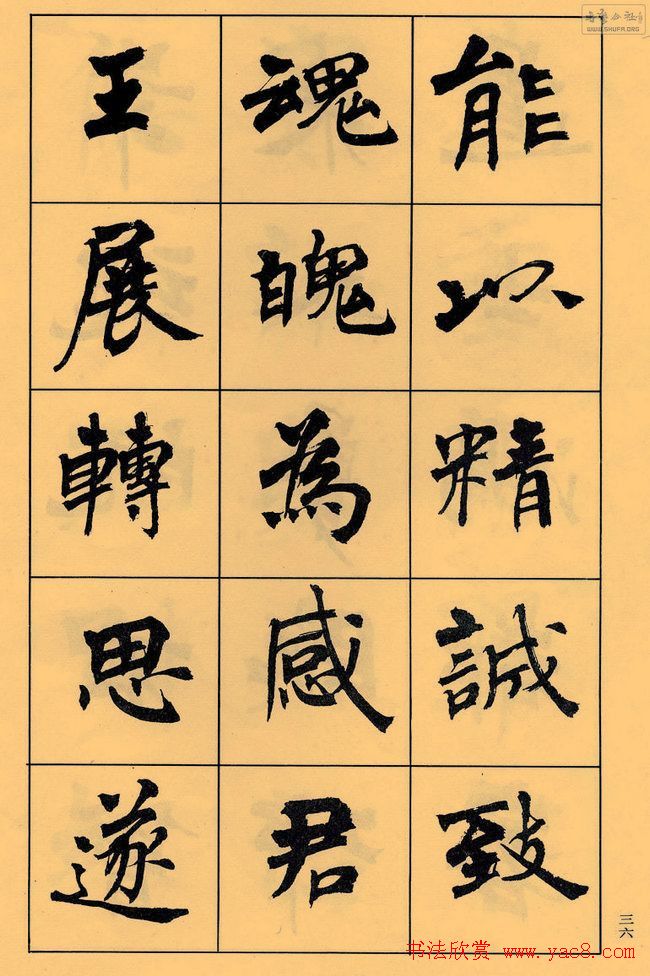 能以精誠致
魂魄為感君
王展轉思遂
三六
WWW.SHUFA.ORG
书法欣赏 www.yac8.com